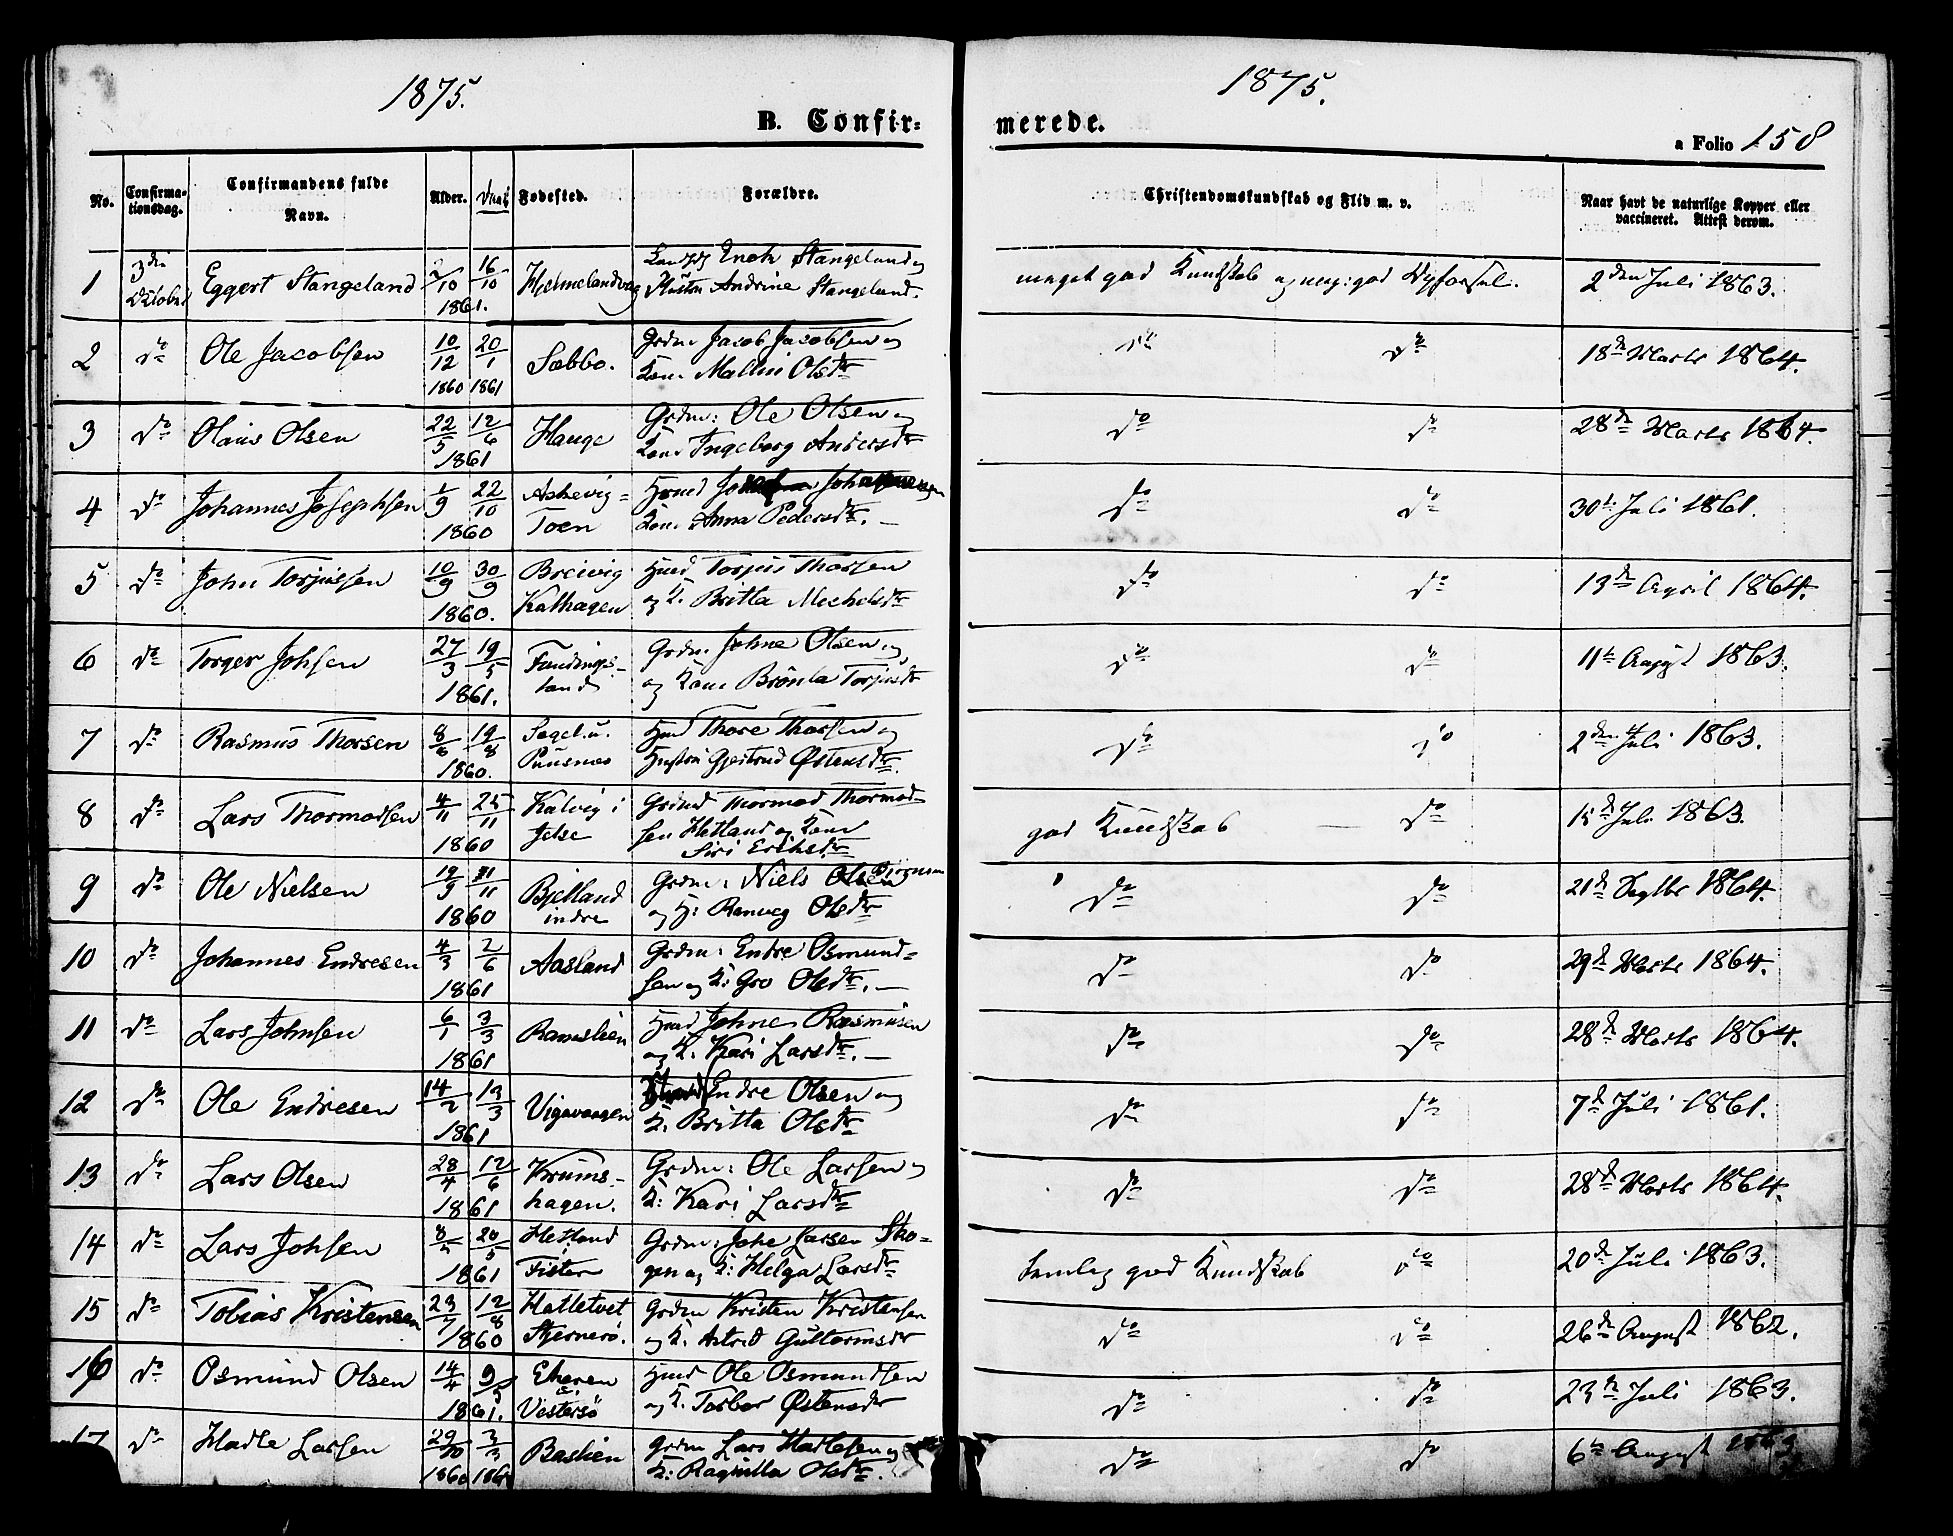 1875.
1875.
B. Confir=
merede.
a Folio 158
No.
Confirma-
tionsdag.
Confirmandens fulde
Navn.
Alder.
Fødested.
Forældre.
Christendomskundskab og Flid m. v.
Naar havt de naturlige Kopper eller
vaccineret. Attest derom.
1 3die October Eggert Stangeland 10 16/10 1861. Hjelmelandvog
Enok Stangeland og
Hustru Andrine Stangeland.
meget god Kundskab og meg: god Opførsel. 2den Juli 1863.
2 do Ole Jacobsen 10/12 1860 20/1 1861 Sæbbo.
Grdm. Jacob Jacobsen og
Kone Mallin Olsdtr
do do 18de Marts 1864.
3 do Olaus Olsen 22/5 12/6 1861 Hauge
Grdm: Ole Olsen og
Kone Ingeborg Andersdtr
do do 28de Marts 1864.
4 do Johannes Josephsen 1/9 22/10 1860 Askevig=
Toen
Hmd Johannesen
Kone Anna Pedersdtr. —
do do 30te Juli 1861.
5 do John Torjussen 10/9 30/9 1860. Breivig
Kalhagen
Hmd Torjus Thorsen
og K. Britta Michelsdtr
do do 13de April 1864.
6 do Torger Johsen 27/3 19/5 1861. Fundings-
land
Grdm. Johne Olsen og
og Kone Brönla Torjusdtr
do do 11te August 1863.
7 do Rasmus Thorsen 8/6 19/8 1860.
Puusnes
Hmd Thore Thorsen og
Hustru Gjertrud Østensdtr.
do do 2den Juli 1863.
8 do Lars Thormodsen 4/11 25/11 1860 Kalvig i
Jelse
Grdmd Thormod Thormod-
sen Hetland og Kone
Siri Eriksdtr
god Kundskab — do 15de Juli 1863.
9 do Ole Nielsen 19/9 11 1860 Bjelland
indre
Grdm: Niels Olsen
og H: Ranveg Olsdtr
do do 21de Septbr 1864.
10 do Johannes Endresen 4/3 2/6 1861 Aasland
Grdm: Endre Osmund=
sen og K: Gro Olsdtr. —
do do 29de Marts 1864.
11 do Lars Johnsen 6/1 3/3 1861 Ramslien
Hmd Johne Rasmusen
og K. Kari Larsdtr. —
do do 28de Marts 1864.
12 do Ole Endresen 14/2 13/3 1861 Vigavaagen
Endre Olsen og
K. Britta Olsdtr
do do 7de Juli 1861.
13 do Lars Olsen 28/4 12/6 1861 Krums-
hagen.
Grdm: Ole Larsen og
K: Kari Larsdtr
do do 28de Marts 1864.
14 do Lars Johsen 8 20/5 1861 Hetland
Fister
Grdm: Johe Larsen Sko=
gen og K: Helga Larsdtr
temlig god Kundskab do 20de Juli 1863.
15 do Tobias Kristensen 23/7 12/8 1860 Halletvet
Stjernerø.
Grdm Kristen Kristensen
og K. Astrid Guttormsdtr
do do 26de August 1862.
16 do Osmund Olsen 14/4 9/5 1861. Ekeren
Vestersö
Hmd Ole Osmundsen
og K. Torbor Østensdtr
do do 23de Juli 1863.
17 do Hadle Larsen 29/10 1860 3/3 1861 Baslien
Grdm Lars Hadlesen og
K: Ragnilla Olsdtr.
do do 6te August 1863